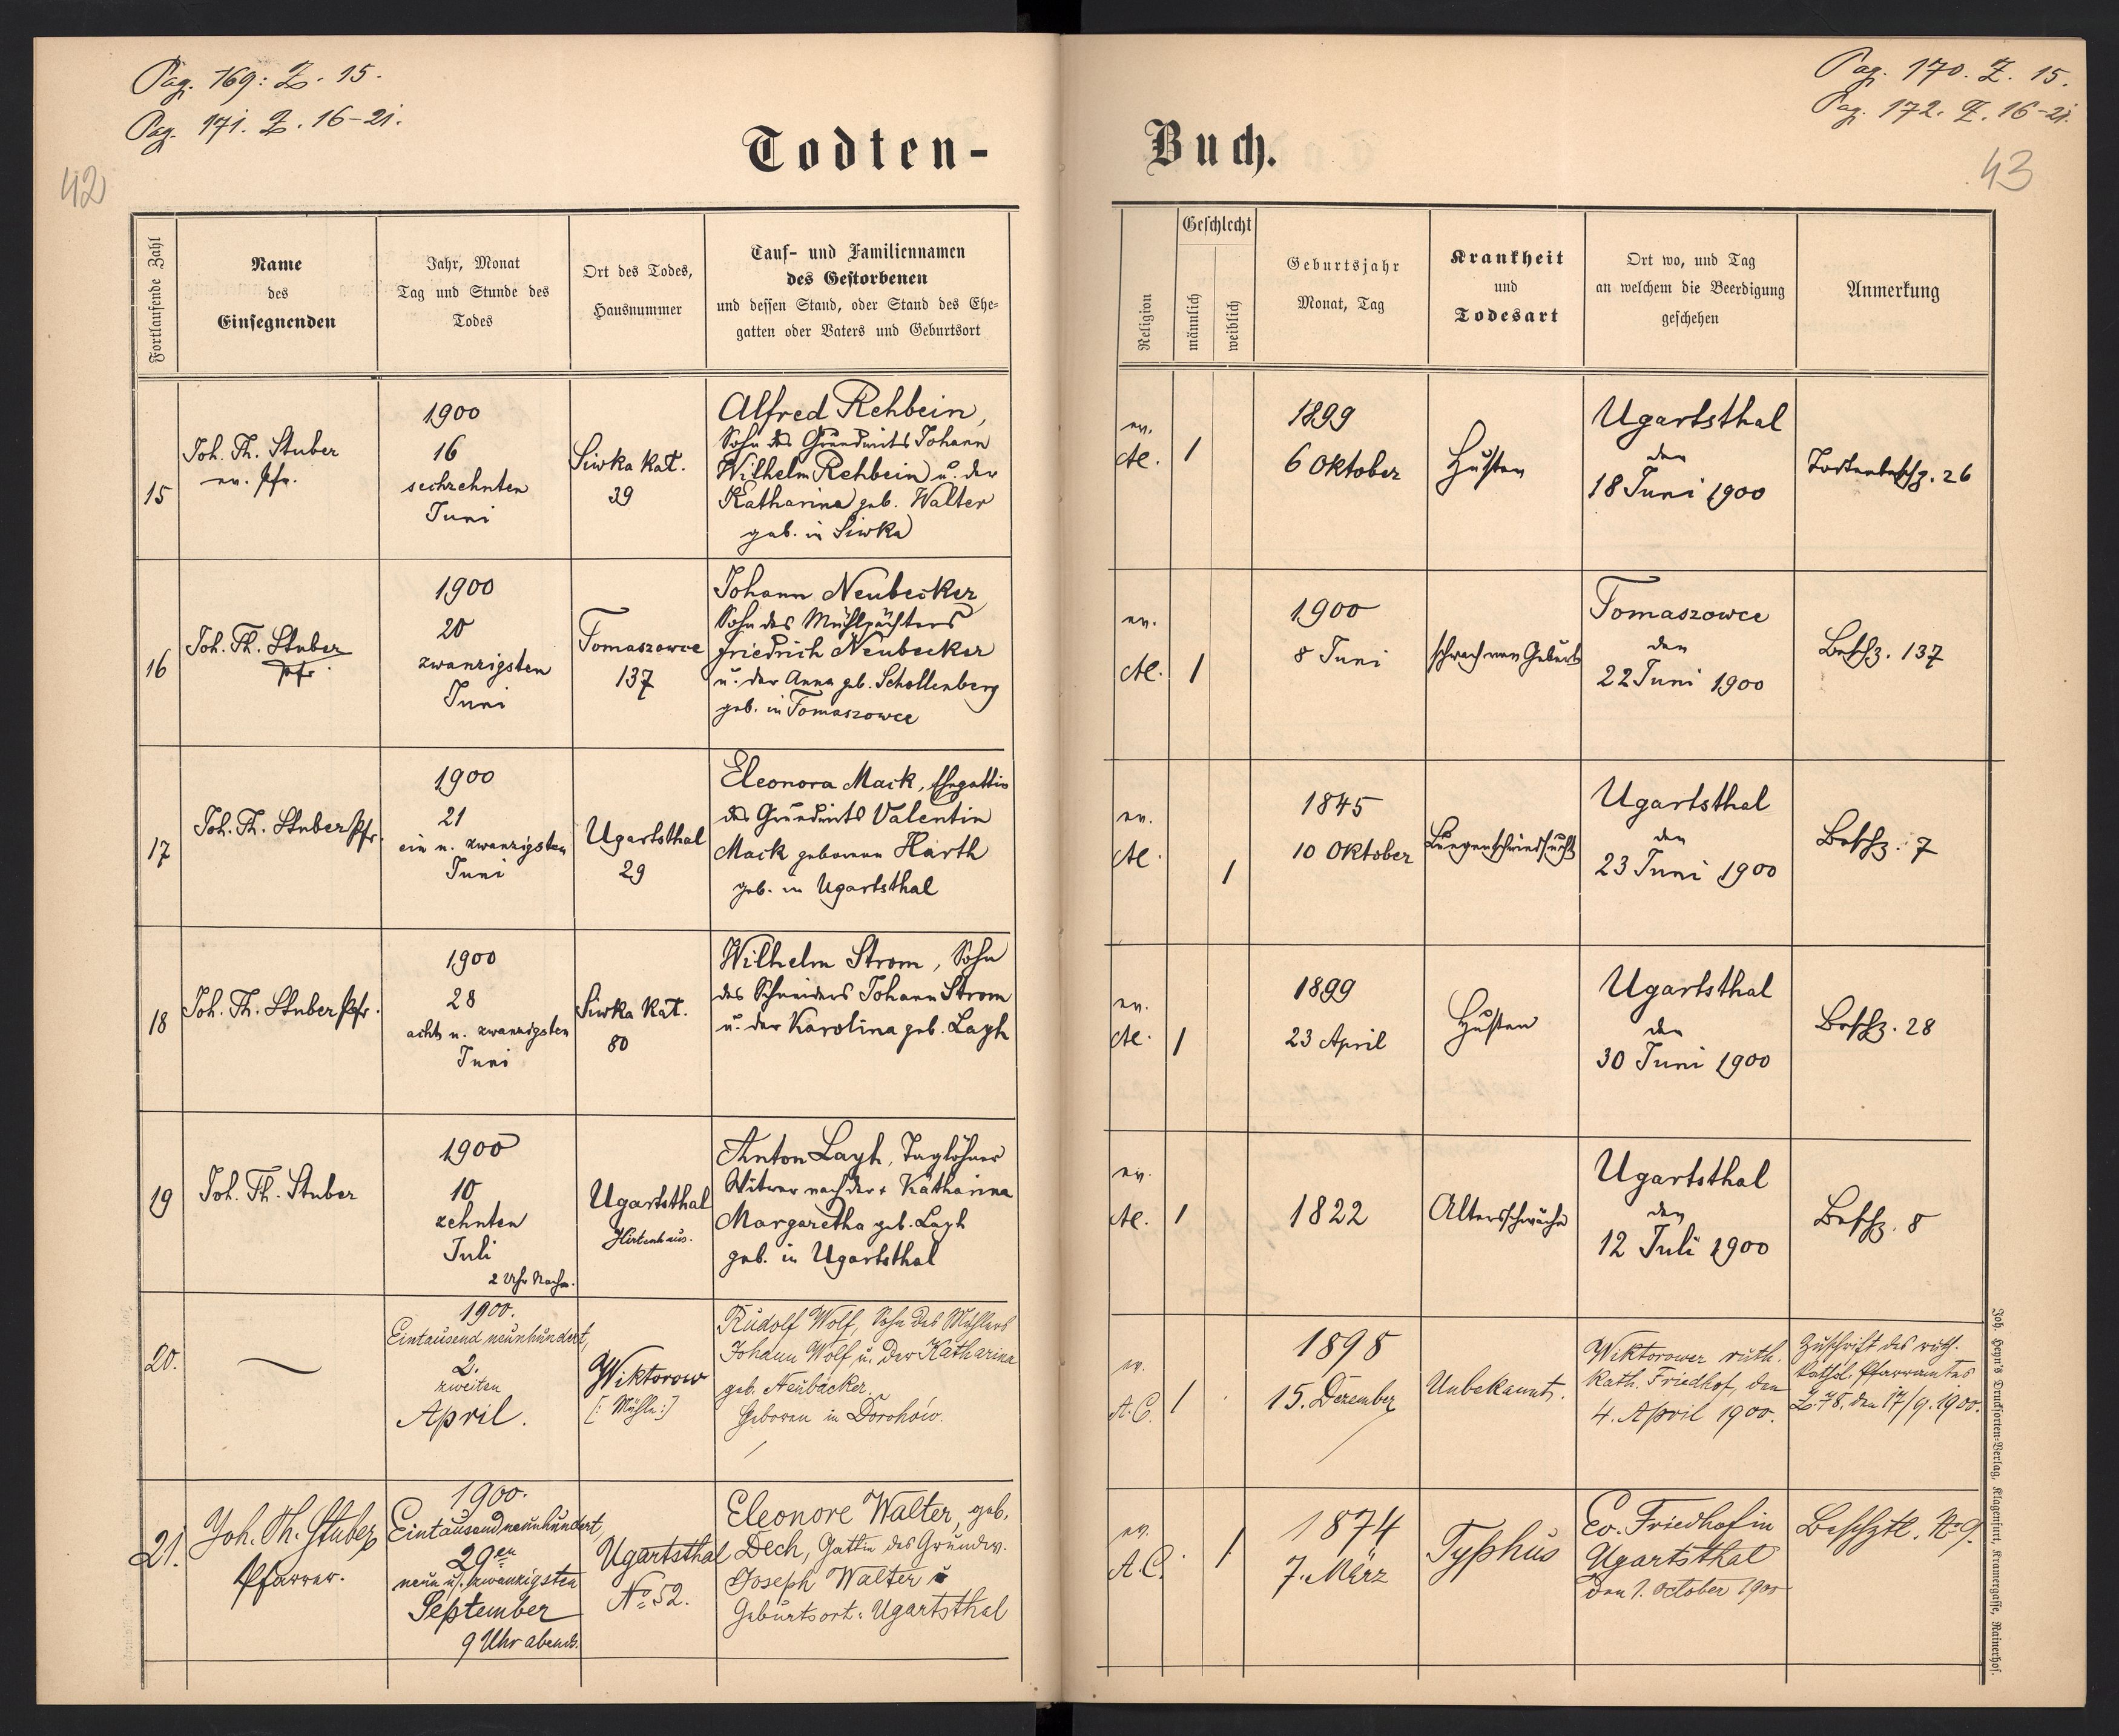 Pag. 169: Z. 15.
Pag. 171. Z. 16-21.
42
Todten-
Fortlaufende Zahl
Name
des
Einsegnenden
Jahr, Monat
Tag und Stunde des
Todes
Ort des Todes,
Hausnummer
Tauf- und Familiennamen
des Gestorbenen
und dessen Stand, oder Stand des Ehe-
gatten oder Vaters und Geburtsort
15
Joh. Th. Stuber
ev. Pfr.
1900
16
sechzehnten
Juni
Siwka Kat.
39
Alfred Rehbein,
Sohn des Grundwirts Johann
Wilhelm Rehbein u. der
Katharina geb. Walter
geb. in Siwka
16
Joh. Th. Stuber
Pfr.
1900
20
zwanzigsten
Juni
Tomaszowce
137
Johann Neubecker
Sohn des Mühlpächters
Friedrich Neubecker
u. der Anna geb. Schollenberg
geb. in Tomaszowce
17
Joh. Th. Stuber Pfr.
1900
21
ein u. zwanzigsten
Juni
Ugartsthal
29
Eleonora Mack, Ehegattin
des Grundwirts Valentin
Mack geborenen Harth
geb. in Ugartsthal
18
Joh. Th. Stuber Pfr.
1900
28
acht u. zwanzigsten
Juni
Siwka Kat.
80
Wilhelm Strom, Sohn
des Schneiders Johann Strom
u. der Karolina geb. Layh
19
Joh. Th. Stuber
1900
10
zehnten
Juli
2 Uhr Nachm.
Ugartsthal
Hirtenhaus.
Anton Layh, Taglöhner
Witwer nach der + Katharina
Margaretha geb. Layh
geb. in Ugartsthal
20.
1900.
Eintausend neunhundert,
2.
zweiten
April.
Wiktorow
[: Mühle :]
Rudolf Wolf, Sohn des Müllers
Johann Wolf u. der Katharina
geb. Neubäcker.
Geboren in Dorohów.
21.
Joh. Th. Stuber
Pfarrer.
1900.
Eintausend neunhundert,
29en
neun u. zwanzigsten
September
9 Uhr abends.
Ugartsthal
No. 52.
Eleonore Walter, geb.
Dech, Gattin des Grundw.
Joseph Walter
Geburtsort: Ugartsthal
Pag. 170. Z. 15.
Pag. 172. Z. 16-21.
43
Buch.
Religion
Geschlecht
männlich
weiblich
Geburtsjahr
Monat, Tag
Krankheit
und
Todesart
Ort wo, und Tag
an welchem die Beerdigung
geschehen
Anmerkung
ev.
AC.
1
1899
6 Oktober
Husten
Ugartsthal
den
18 Juni 1900
Todtenbeschz. 26
ev.
AC.
1
1900
8 Juni
schwach von Geburt
Tomaszowce
den
22 Juni 1900
Beschz. 137
ev.
AC.
1
1845
10 Oktober
Lungenschwindsucht
Ugartsthal
den
23 Juni 1900
Beschz. 7
ev.
AC.
1
1899
23 April
Husten
Ugartsthal
den
30 Juni 1900
Beschz. 28
ev.
AC.
1
1822
Altersschwäche
Ugartsthal
den
12 Juli 1900
Beschz. 8
ev.
A.C.
1
1898
15. Dezember
Unbekannt.
Wiktorower ruth.
kath. Friedhof, den
4. April 1900.
Zuschrift des ruth.
kathol. Pfarramtes
Z. 78. den 17/9. 1900.
ev.
A.C.
1
1874
7. März
Typhus
Ev. Friedhof in
Ugartsthal
den 1. October 1900
Beschztl. No 9.
Joh. Heyn's Drucksorten-Verlag, Klagenfurt, Kramergasse, Rainerhof.